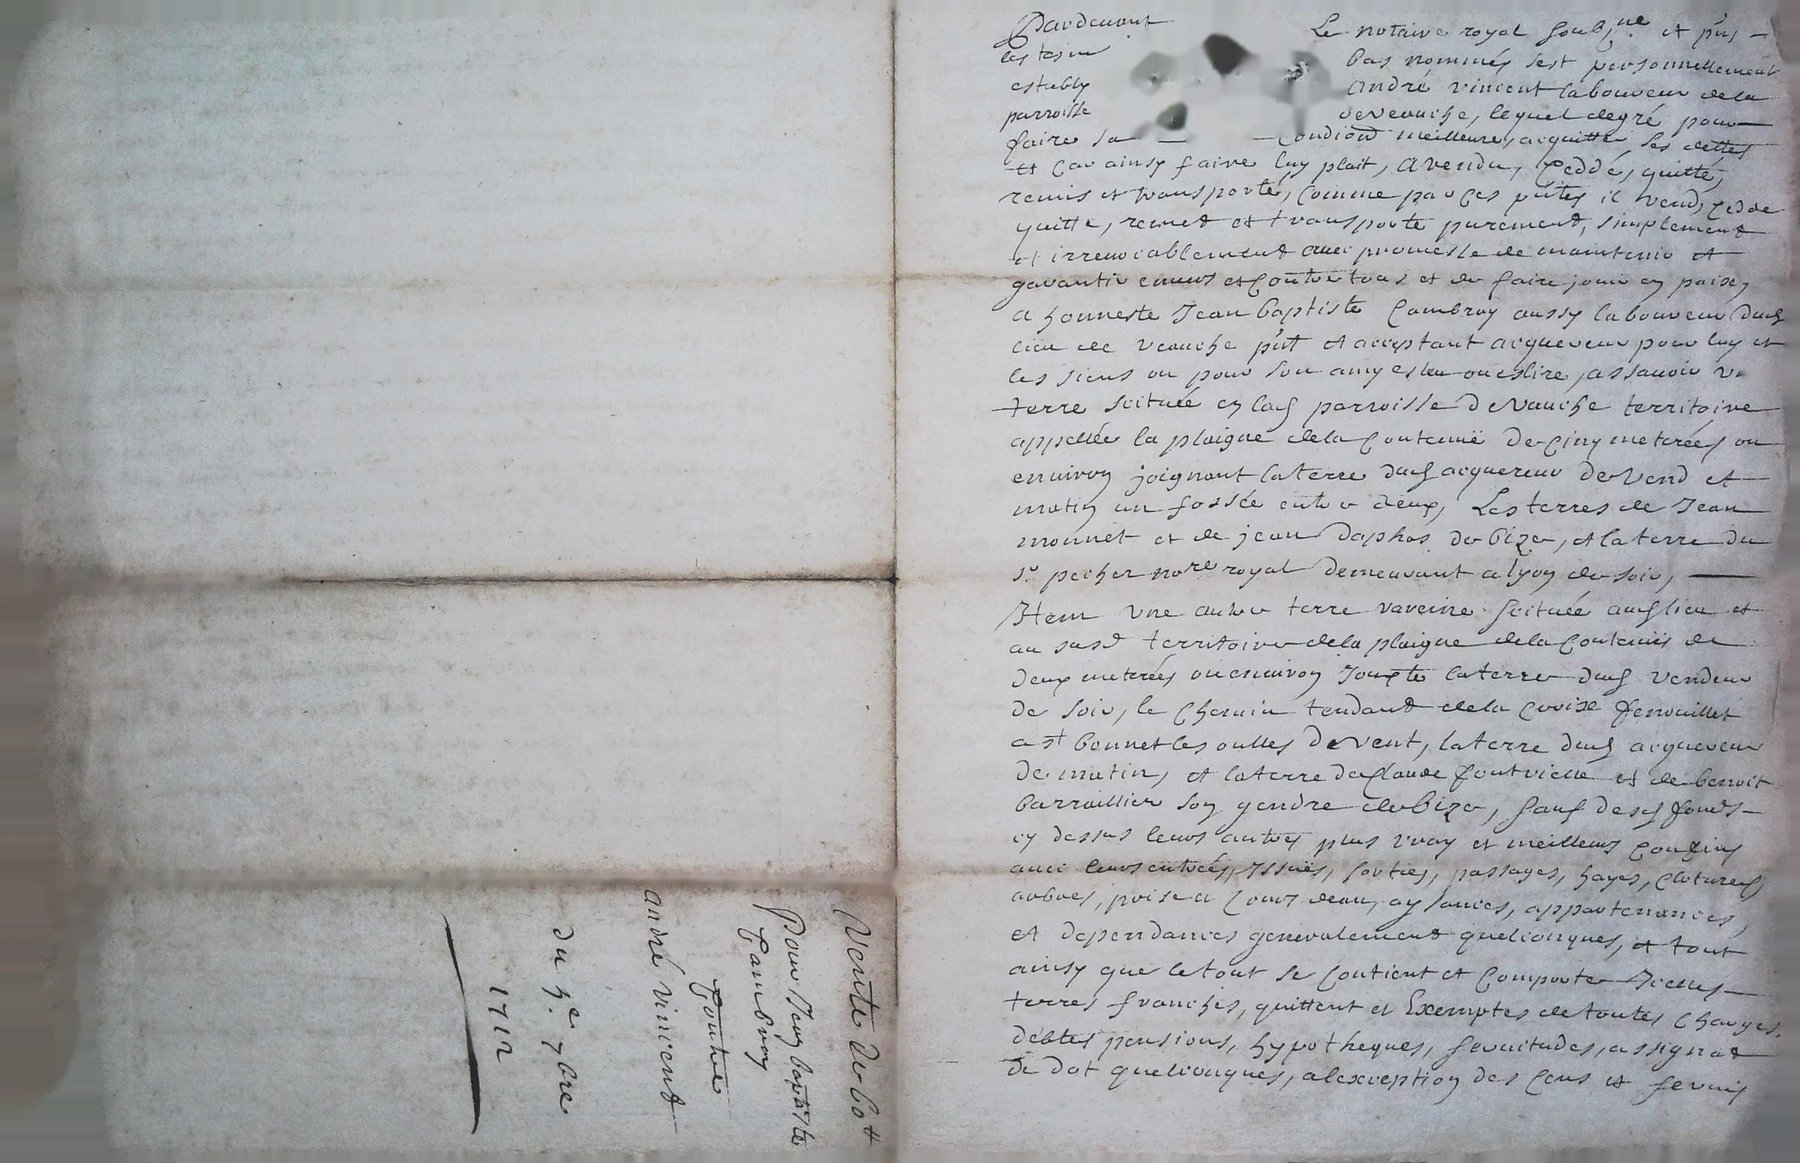 Pardevant Le notaire royal soubz.ne et pn̄s
les tesm bas nommés s'est personnellement
estably André vincent laboureur dela
parroisse deveauche, lequel degré pour
faire sa condion̄ meilleure, acquitter ses dettes
et car ainsy faire luy plait, a vendu, ceddé, quitté,
remis et transporté, comme par ces pn̄tes il vend, cedde
quitte, remet et transporte purement, simplement
et irrevocablement avec promesse de maintenir et
garantir envers et contre tous et de faire jouir en paix,
a honneste Jean baptiste Cambray aussy laboureur dud
lieu de veauche pn̄t et acceptant acquereur pour luy et
les siens ou pour son amy esleu ou eslire, assavoir
terre scituée en lad parroisse de Vauche territoire
appellée la plaigne dela contenüe de cinq meterées ou
environ joignant la terre dud acquereur de Vend et
matin un fossée entre deux, Les terres de Jean
monnet et de jean Daphas de bize, et la terre du
Sr pecher nore royal demeurant a lyon de soir,
Item une autre terre vareine scituée aud lieu et
au susd territoire dela plaigne dela contenüe de
deux meterées ou environ Jouxte la terre dud vendeur
de soir, le chemin tendant dela croix fenouillet
a st bonnet les oulles de vent, la terre dud acquereur
de matin, et la terre de Claude fontvielle et de benoit
barraillier son gendre de bize, sauf desd fonds
cy dessus leurs autres plus vray et meilleurs confins
avec leurs entrées, Issües, sorties, passages, hayes, clotures
arbres, prise a cours deau, aysances, appartenances,
et dependances generalement quelconques, et tout
ainsy que le tout se contient et comporte Icelles
terres franches, quittent et Exemptes de toutes charges,
debtes pensions, hypotheques, servitudes, assignat
de dot quelconques, a lexception des cens et servis
Vente de bott
Pour Jean baptiste
Cambray
Contre
André vincent
du 5.e 7bre
1712